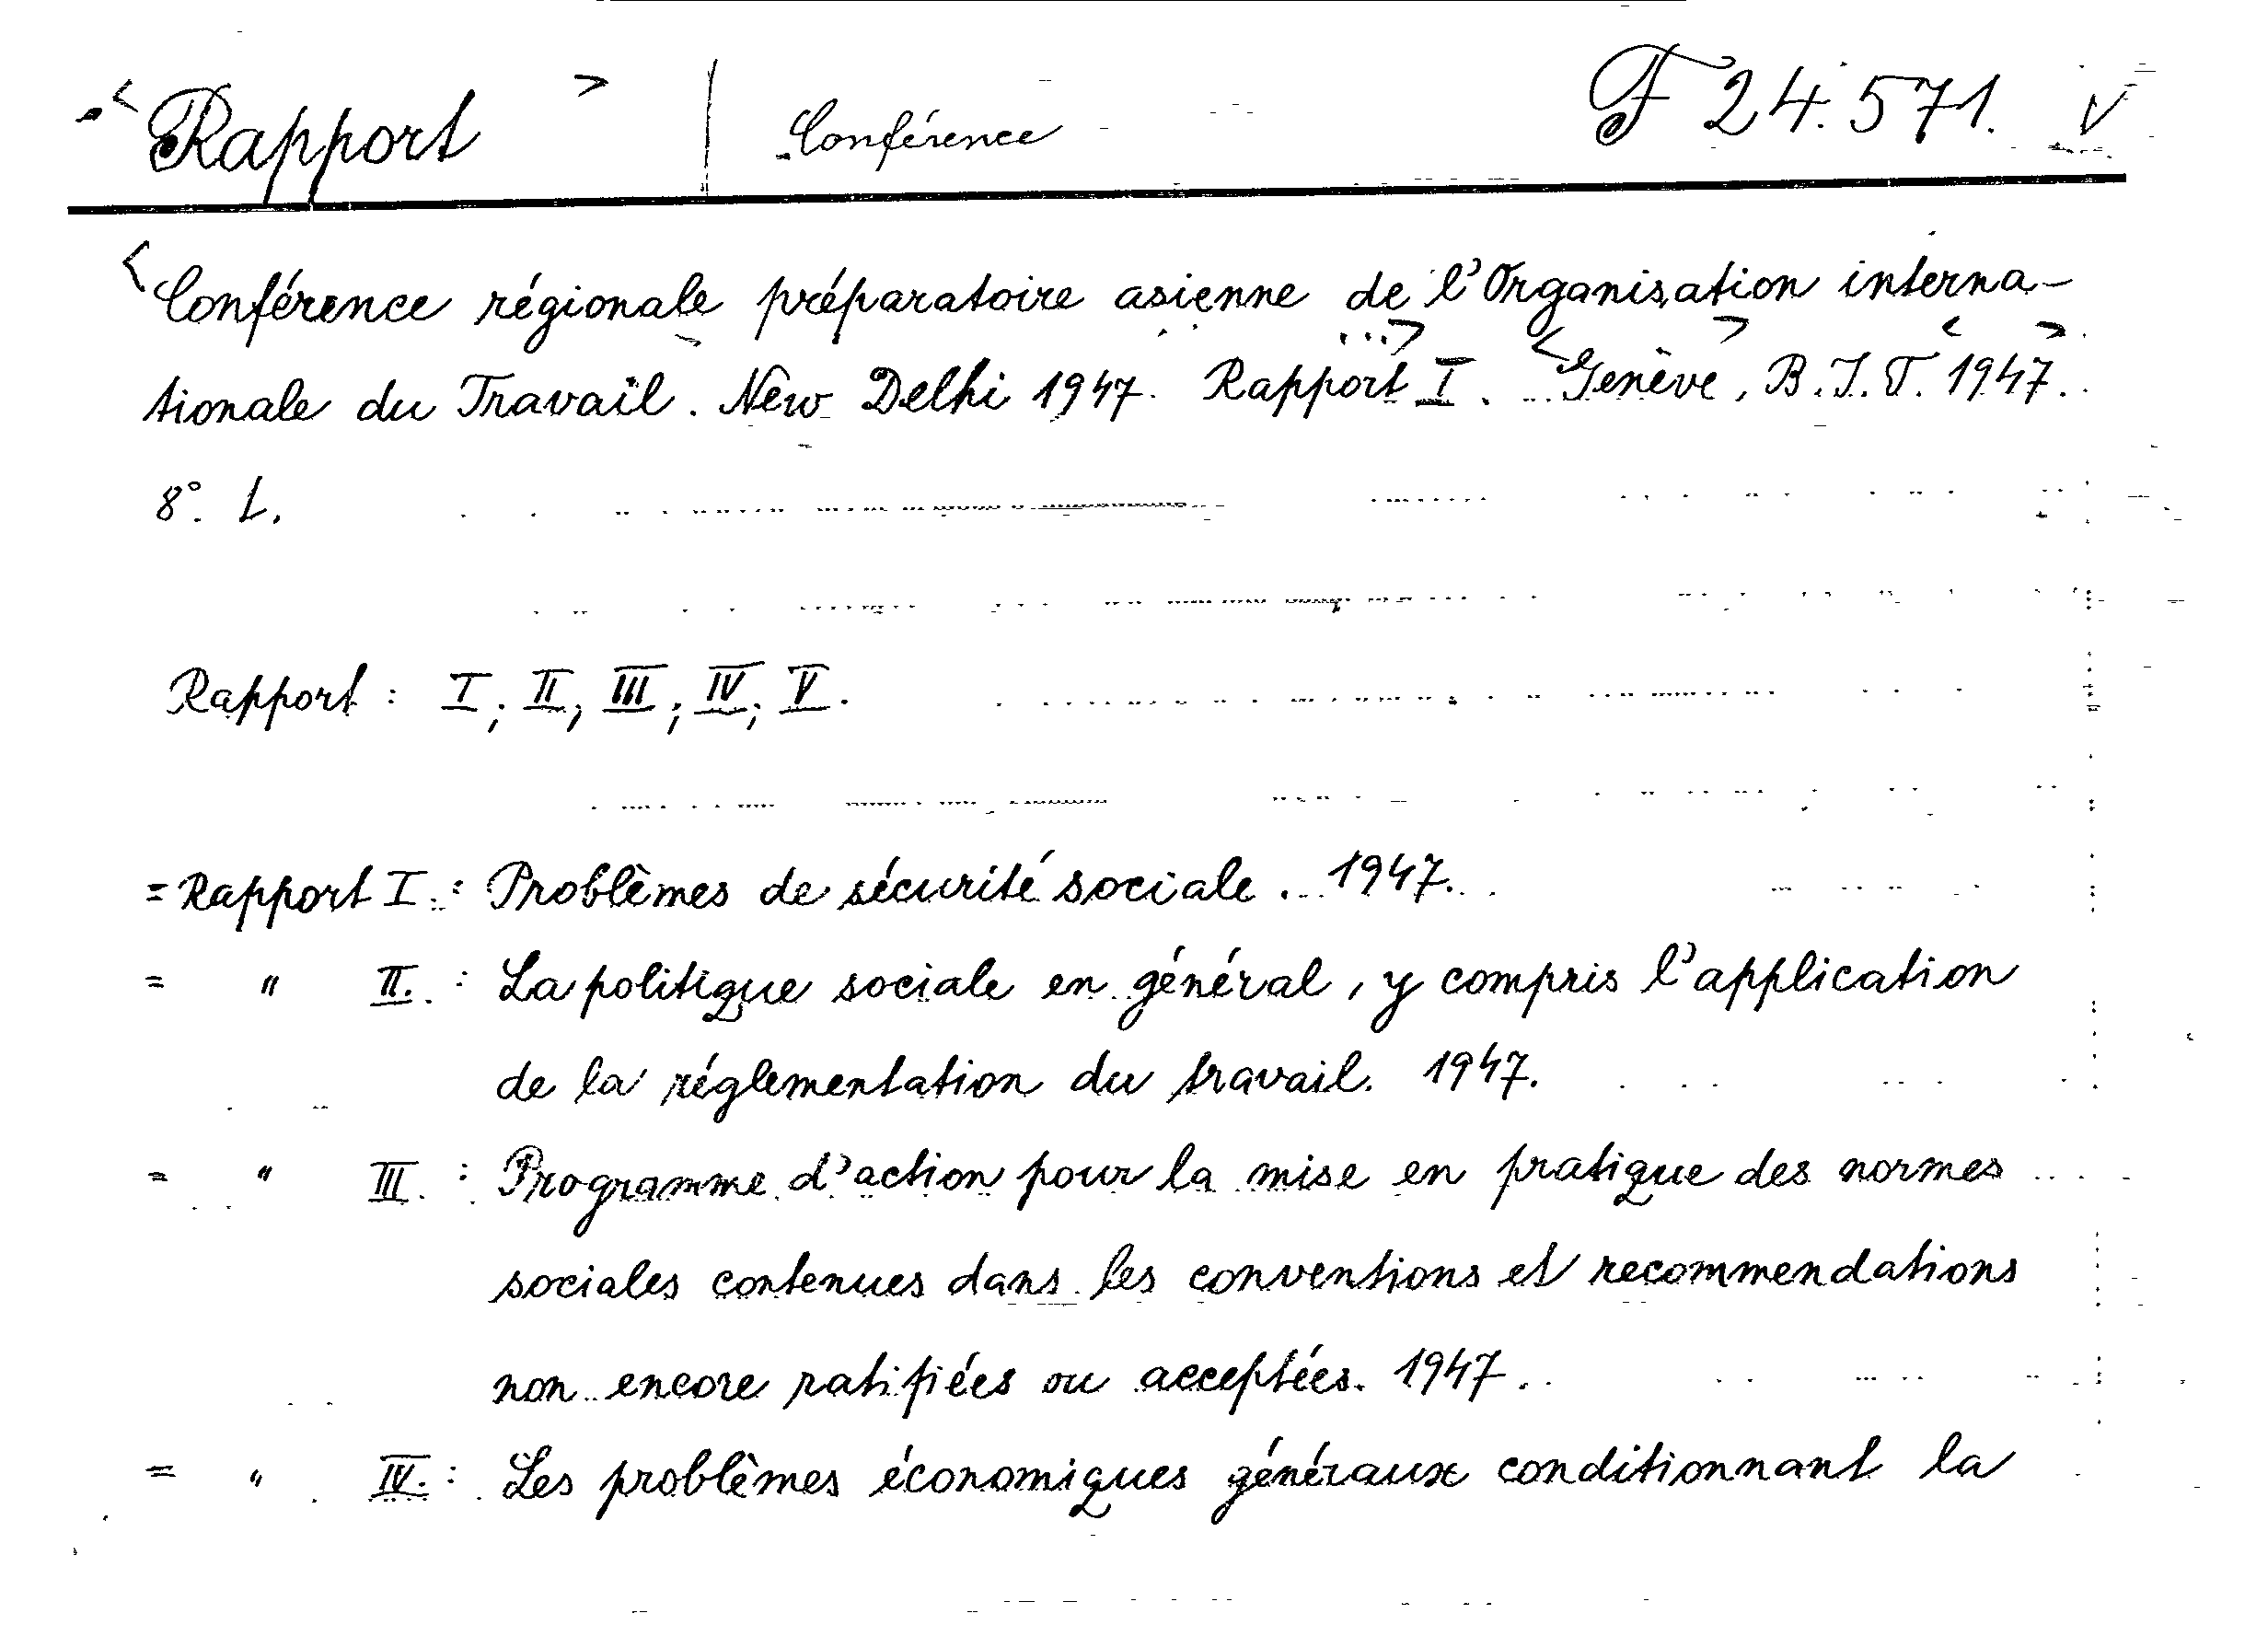 <Rapport> | Conférence F 24.571. V
<Conférence régionale préparatoire asienne de l'Organisation interna-
tionale du Travail. New Delhi 1947. Rapport ...> I. <Genève>, B.I.T. <1947>.
8°. L.
Rapport : I; II; III; IV; V.
= Rapport I. : Problèmes de sécurité sociale. 1947.
= " II. : La politique sociale en général, y compris l'application
de la réglementation du travail. 1947.
= " III. : Programme d'action pour la mise en pratique des normes
sociales contenues dans les conventions et recommendations
non encore ratifiées ou acceptées. 1947.
= " IV. : Les problèmes économiques généraux conditionnant la